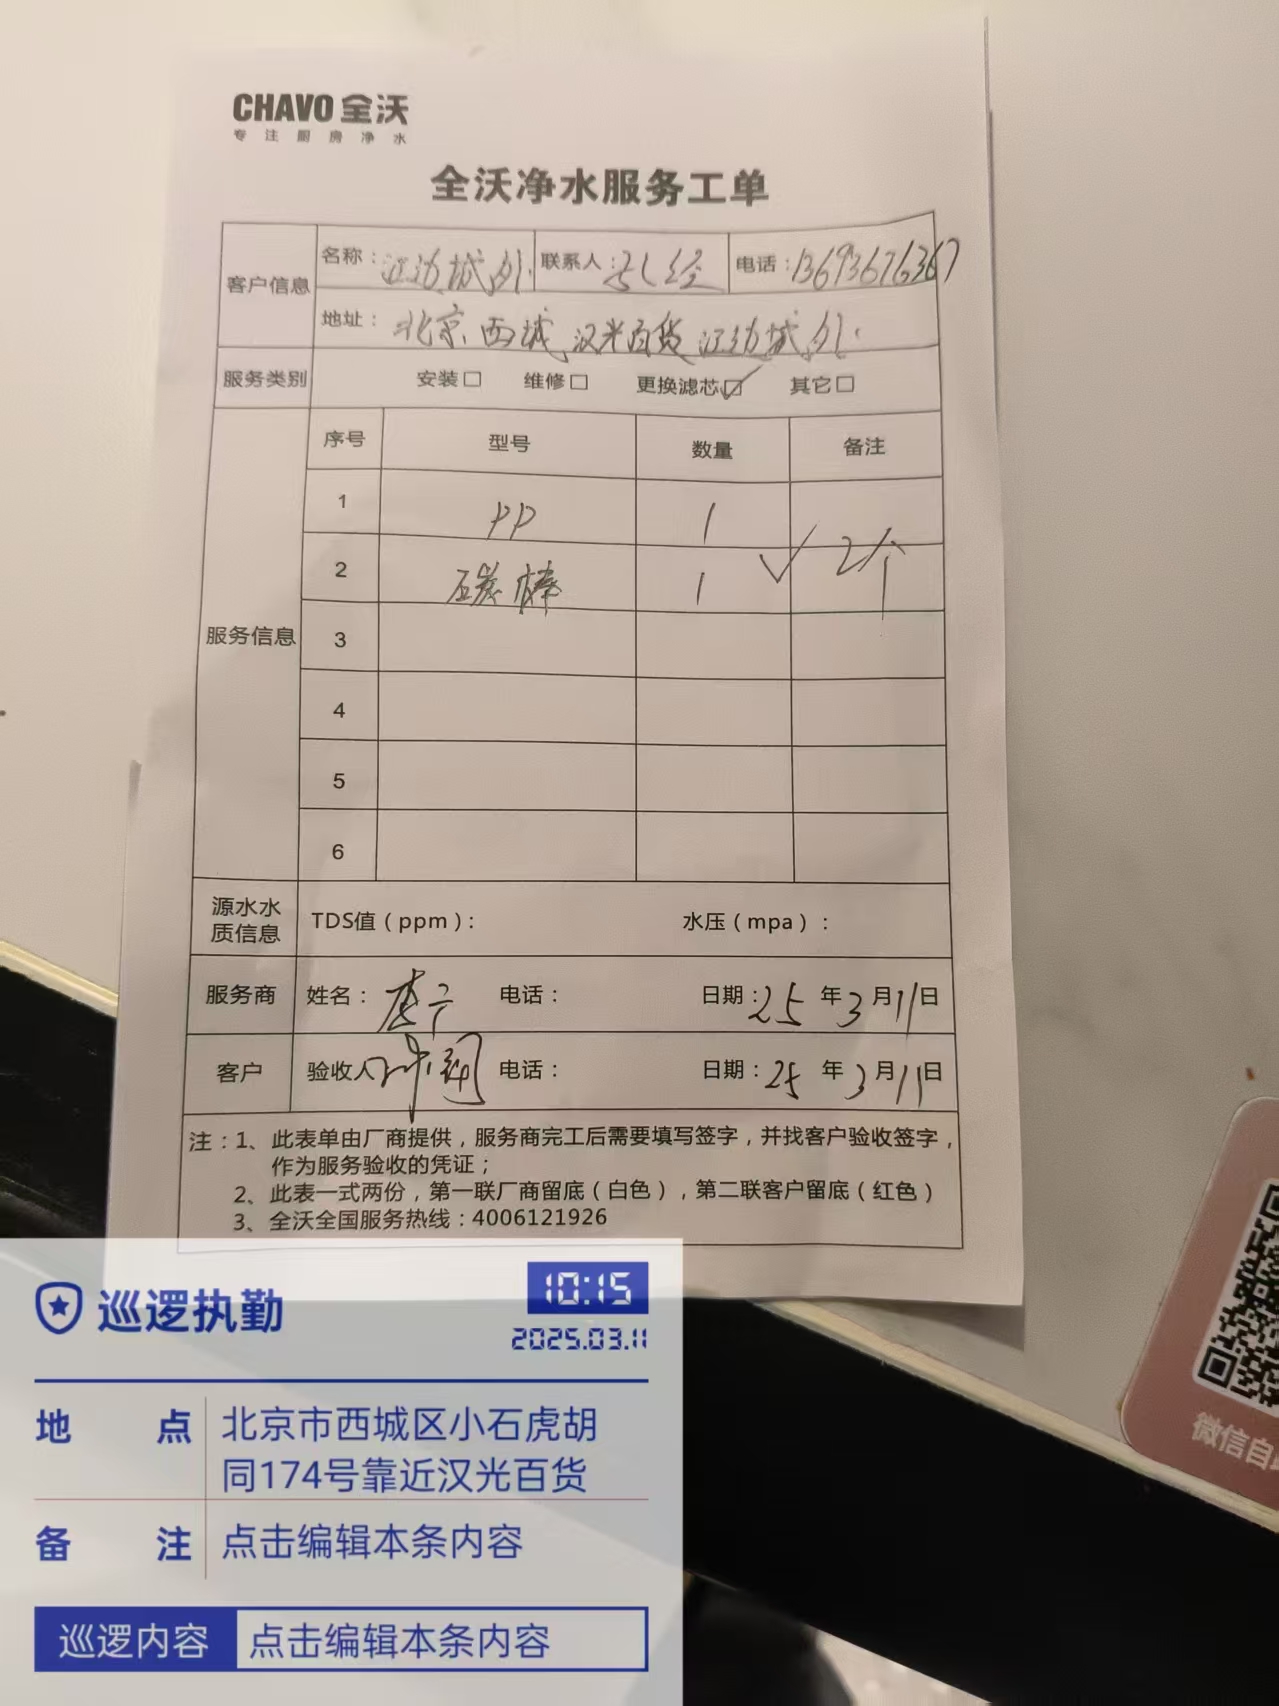 CHAVO 全沃
专注厨房净水
全沃净水服务工单
客户信息 名称：江边城外 联系人：张经 电话：13693676367
地址：北京西城汉光百货江边城外
服务类别 安装□ 维修□ 更换滤芯☑ 其它□
服务信息 序号 型号 数量 备注
1 PP 1
2 碳棒 1 ✓ 2个
3
4
5
6
源水水质信息 TDS值（ppm）： 水压（mpa）：
服务商 姓名： 电话： 日期：25年3月11日
客户 验收人 电话： 日期：25年3月11日
注：1、此表单由厂商提供，服务商完工后需要填写签字，并找客户验收签字，
作为服务验收的凭证；
2、此表一式两份，第一联厂商留底（白色），第二联客户留底（红色）
3、全沃全国服务热线：4006121926
巡逻执勤 10:15
2025.03.11
地点 北京市西城区小石虎胡
同174号靠近汉光百货
备注 点击编辑本条内容
巡逻内容 点击编辑本条内容
微信自